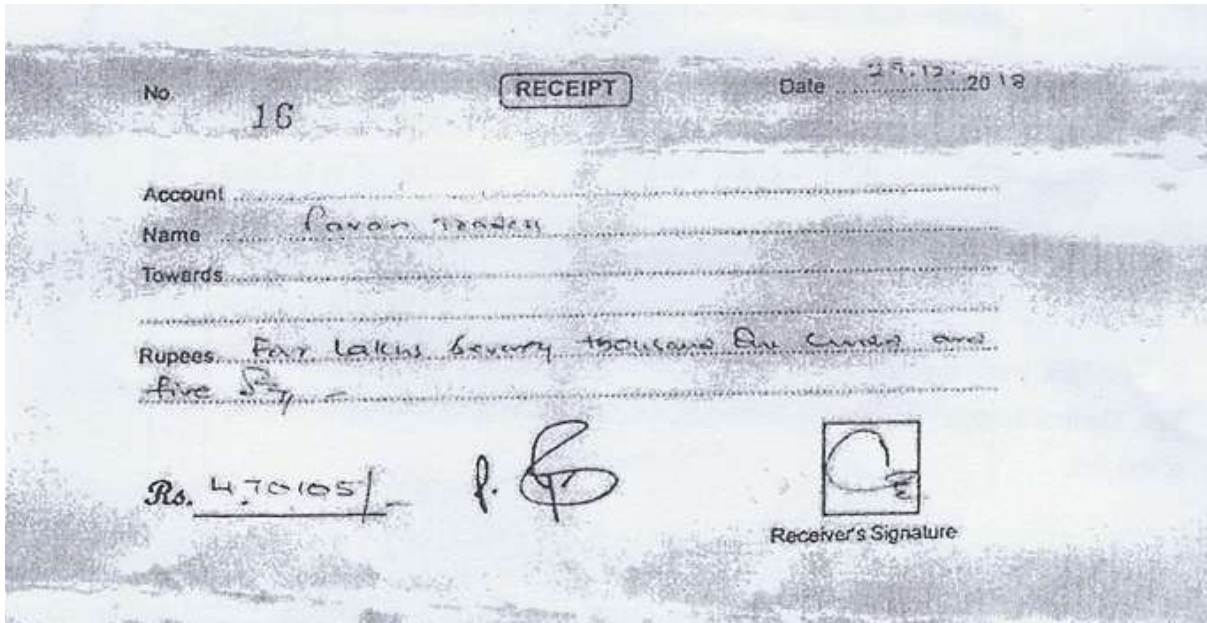 No. RECEIPT Date 29.12.2018
16
Account
Name Pavan Traders
Towards
Rupees Four Lakhs Seventy thousand and
five
Rs. 470105/-
Receiver's Signature